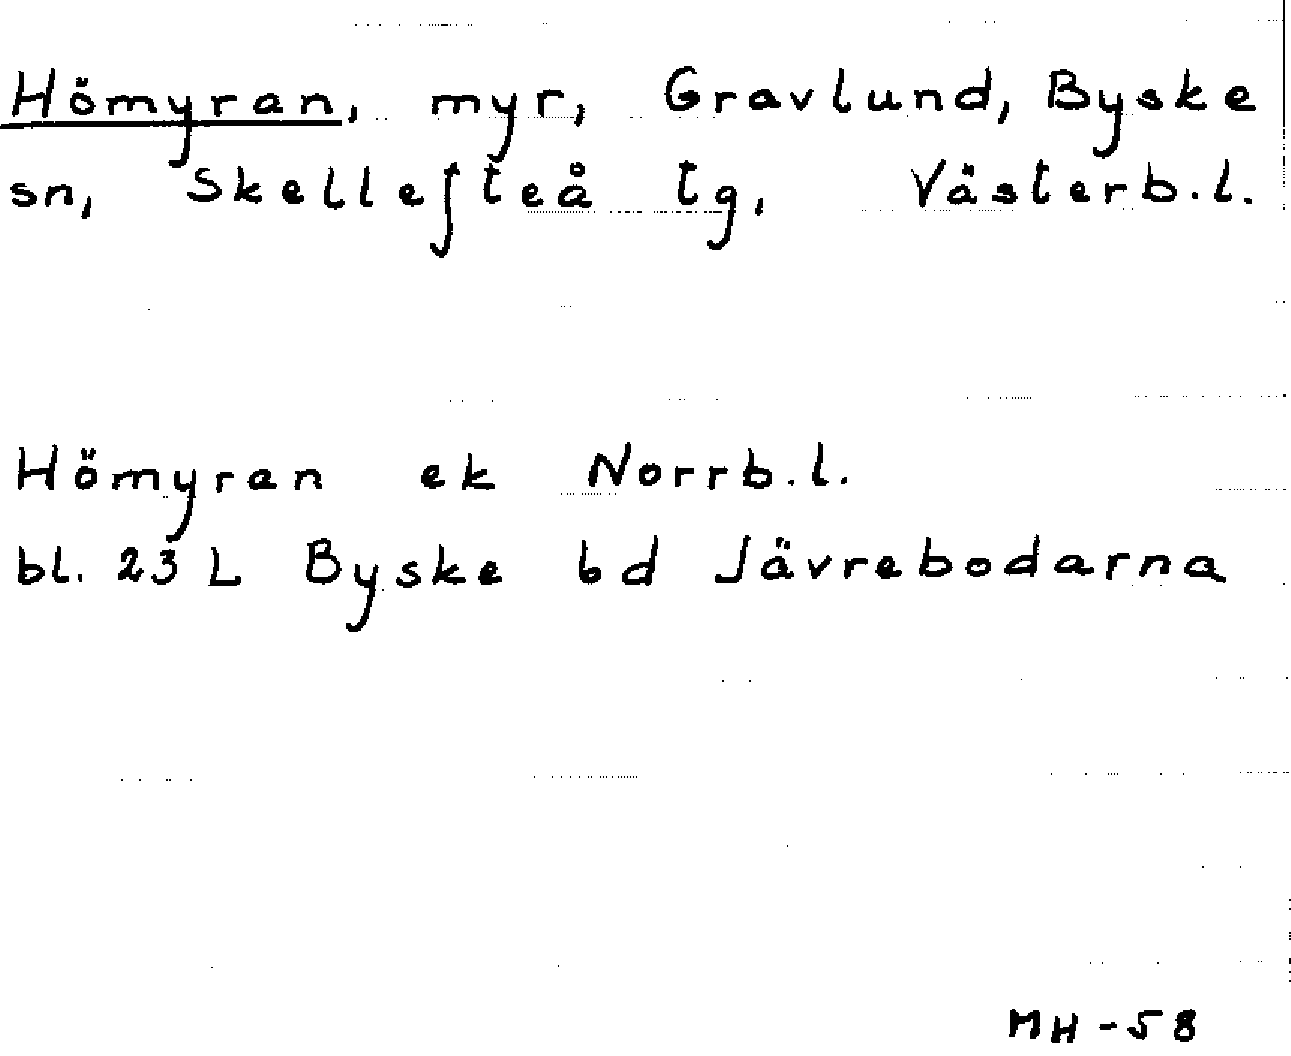 Hömyran, myr, Gravlund, Byske
sn, Skellefteå tg, Västerb.l.
Hömyran ek Norrb.l.
bl. 23 L Byske bd Jävrebodarna
MH-58